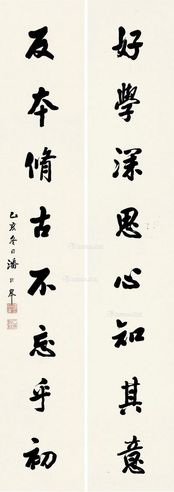 好學深思心知其意
反本脩古不忘乎初
乙亥冬日潘齡皋